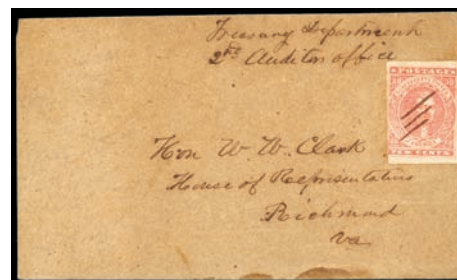 Treasury Department
2nd Auditors office
POSTAGE
TEN CENTS
Hon W. W. Clark
House of Representatives
Richmond
Va